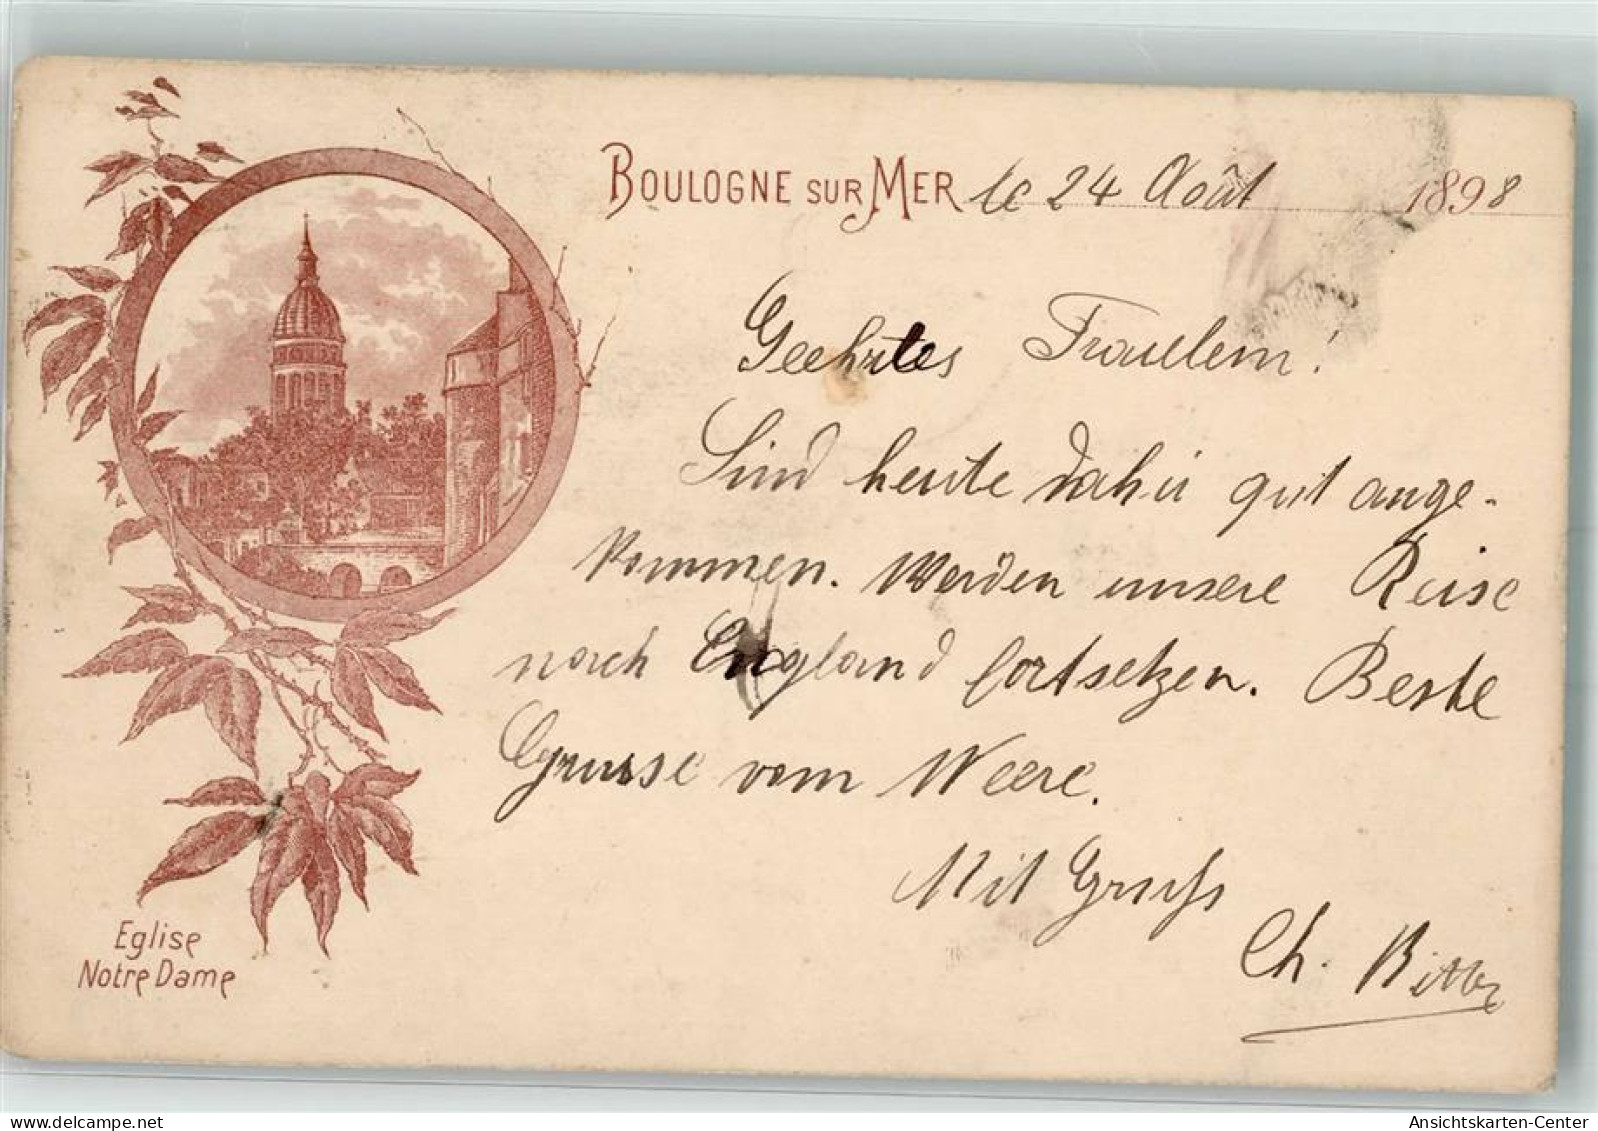 BOULOGNE SUR MER le 24 Août 1898
Geehrtes Fraulein!
Sind heute dahir gut ange-
kommen. Werden unsere Reise
nach England fortsetzen. Beste
Grusse vom Meere.
Mit Gruss
Ch. Ritter
Eglise
Notre Dame
Ansichtskarten-Center